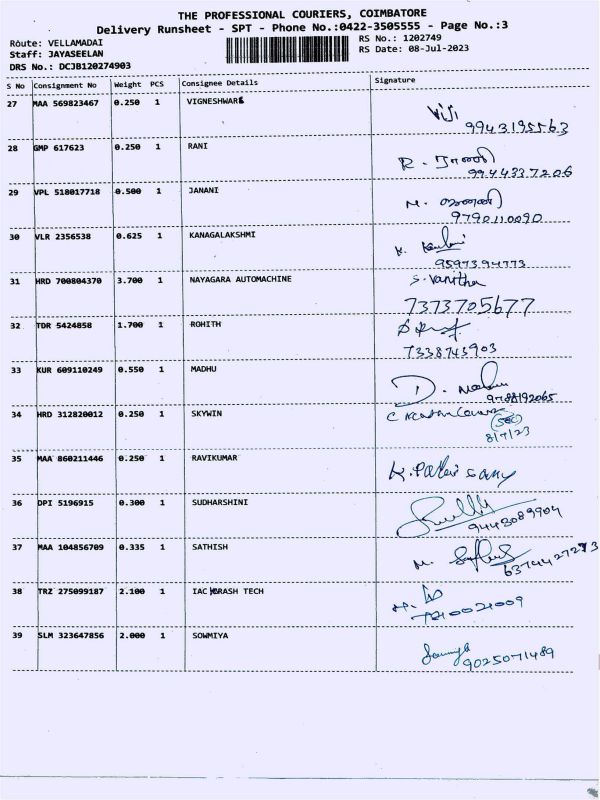 THE PROFESSIONAL COURIERS, COIMBATORE
Delivery Runsheet - SPT - Phone No.:0422-3505555 - Page No.:3
Route: VELLAMADAI
RS No.: 1202749
Staff: JAYASEELAN
RS Date: 08-Jul-2023
DRS No.: DCJB120274903
S No Consignment No Weight PCS Consignee Details Signature
27 MAA 569823467 0.250 1 VIGNESHWAR
Viji
9943195563
28 GMP 617623 0.250 1 RANI
R. ராணி
9944337206
29 VPL 518017718 0.500 1 JANANI
M. ஜனனி
9790110090
30 VLR 2356538 0.625 1 KANAGALAKSHMI
K.
9597394773
31 HRD 700804370 3.700 1 NAYAGARA AUTOMACHINE
S. Vanitha
7373705677
32 TDR 5424858 1.700 1 ROHITH
7338743903
33 KUR 609110249 0.550 1 MADHU
D.
9788192065
34 HRD 312820012 0.250 1 SKYWIN
C
8/7/23
35 MAA 860211446 0.250 1 RAVIKUMAR
K. Palani Samy
36 DPI 5196915 0.300 1 SUDHARSHINI
9443089904
37 MAA 104856709 0.335 1 SATHISH
M.
6374427273
38 TRZ 275099187 2.100 1 IAC CRASH TECH
39 SLM 323647856 2.000 1 SOWMIYA
Sowmiya
9025071489